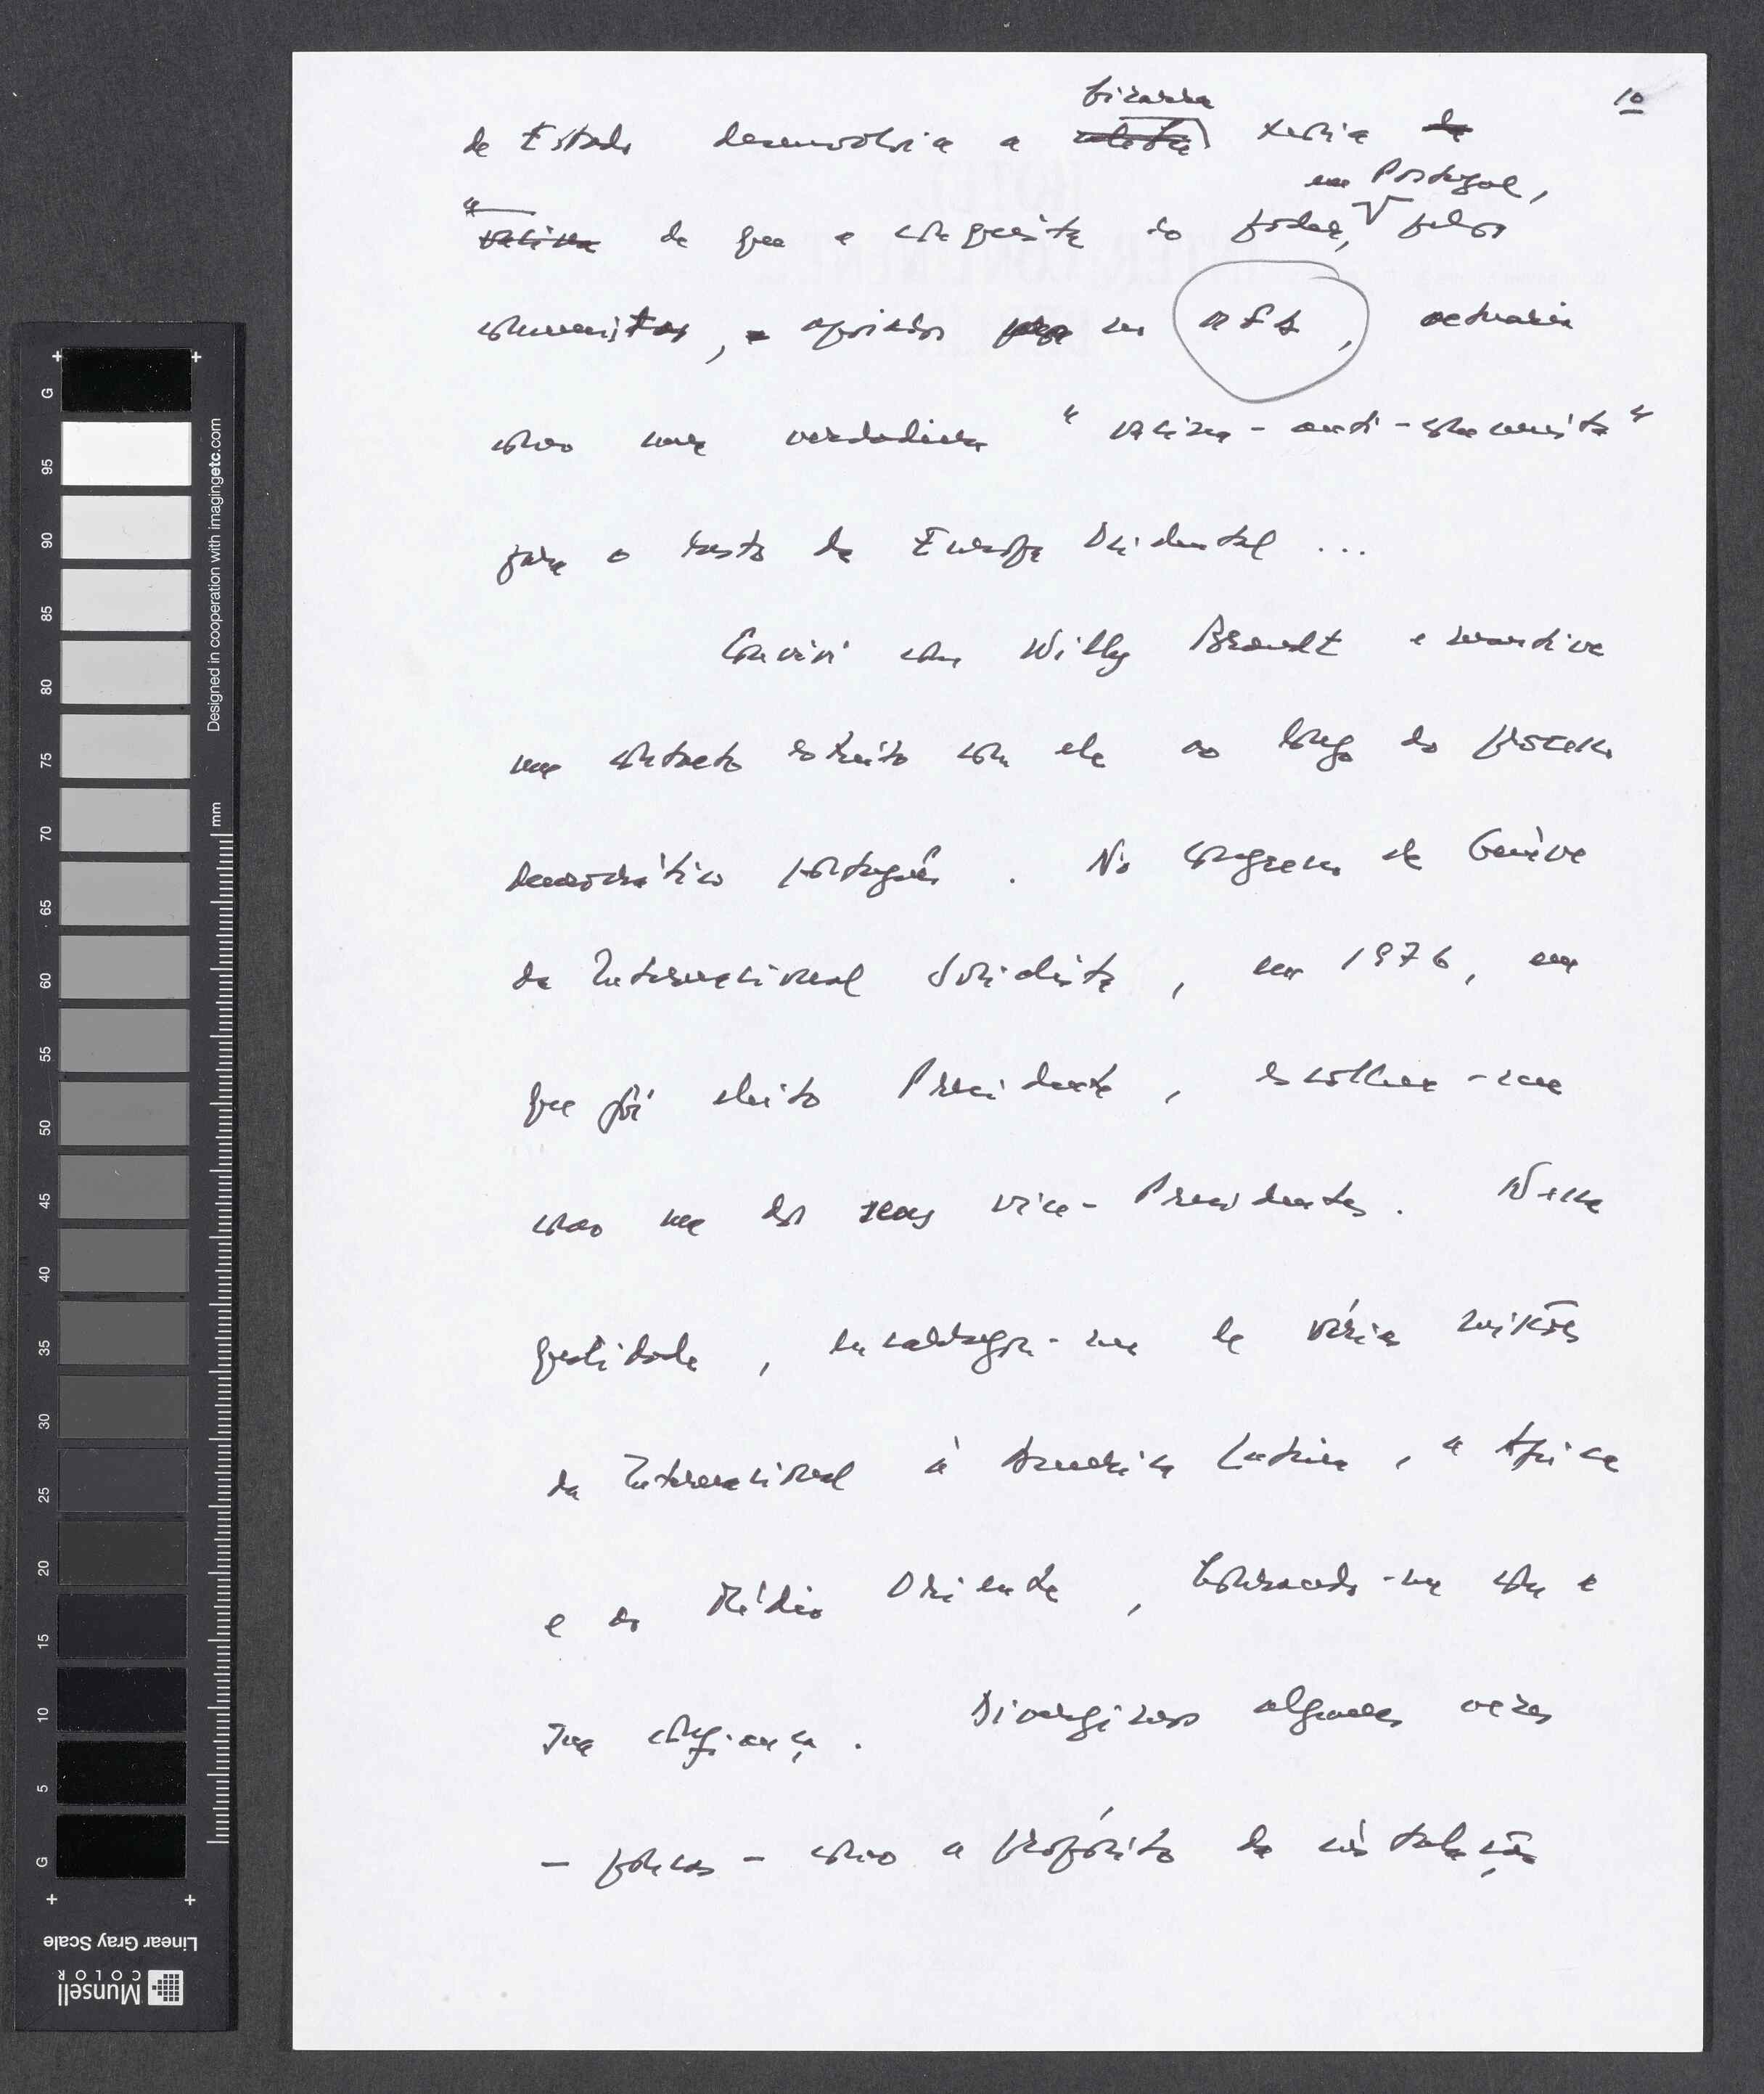 10
bizarra
de Estado desenvolvia a célebre teoria da
em Portugal,
"vacina de que a conquista do poder, pelos
comunistas, apoiados no MFA, actuaria
como uma verdadeira "vacina-anti-comunista"
para o resto da Europa Ocidental ...
Convivi com Willy Brandt e mantive
um contacto estreito com ele ao longo do processo
democrático português. No Congresso de Genève
da Internacional Socialista, em 1976, em
que foi eleito Presidente, escolheu-me
como um dos seus vice-Presidentes. Nessa
qualidade, encarregou-me de várias missões
da Internacional à America Latina, a Africa
e ao Médio Oriente, honrando-me com a
sua confiança. Divergimos algumas vezes
- poucas - como a propósito da instalação
G 95 90 85 80 75 70 65 60 55 50 45 40 35 30 25 20 15 10 5 G
mm
Designed in cooperation with imagingetc.com
Linear Gray Scale
Munsell
COLOR